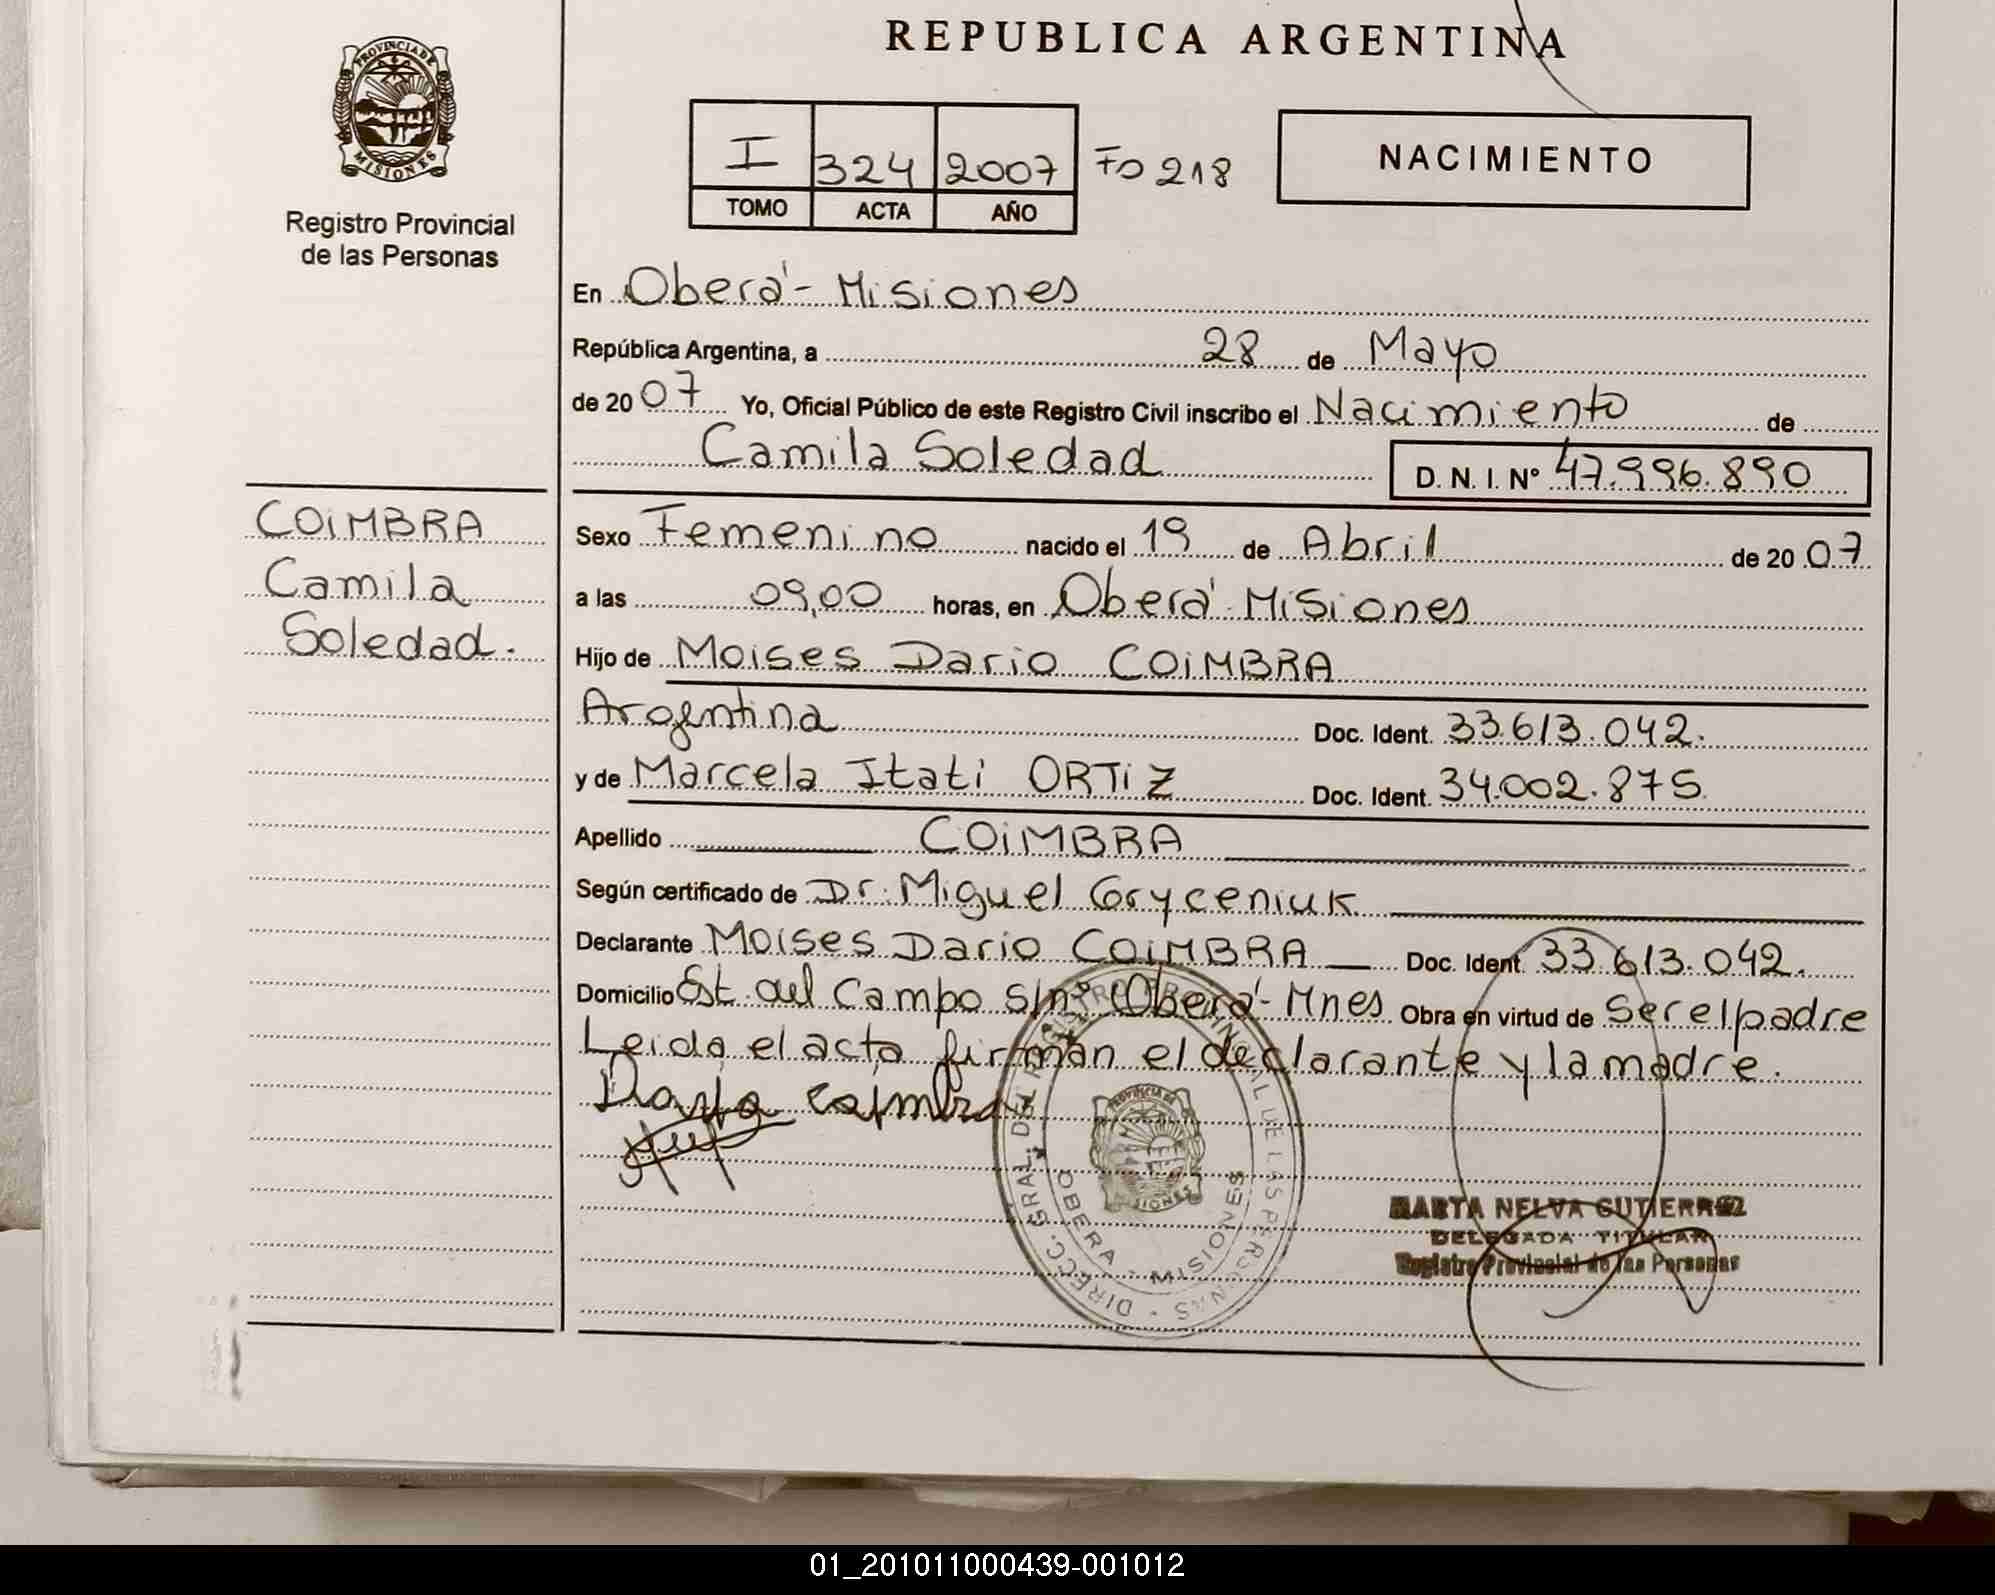 REPUBLICA ARGENTINA
PROVINCIA DE
MISIONES
Registro Provincial
de las Personas
I 324 2007 Fo 218
TOMO ACTA AÑO
NACIMIENTO
En Oberá - Misiones
República Argentina, a 28 de Mayo
de 20 07 Yo, Oficial Público de este Registro Civil inscribo el Nacimiento de
Camila Soledad D. N. I. Nº 47.996.890
COIMBRA
Camila
Soledad.
Sexo Femenino nacido el 19 de Abril de 20 07
a las 09,00 horas, en Oberá - Misiones
Hijo de Moises Dario COIMBRA
Argentina Doc. Ident. 33.613.042.
y de Marcela Itati ORTIZ Doc. Ident. 34.002.875
Apellido COIMBRA
Según certificado de Dr. Miguel Gryceniuk
Declarante Moises Dario COIMBRA Doc. Ident. 33.613.042.
Domicilio Est. del Campo s/nº Oberá - Mnes Obra en virtud de Ser el padre
Leida el acta firman el declarante y la madre.
DIRECC. GRAL. DEL REGISTRO PROVINCIAL DE LAS PERSONAS
OBERA - MISIONES
MARTA NELVA GUTIERREZ
DELEGADA TITULAR
Registro Provincial de las Personas
01_201011000439-001012